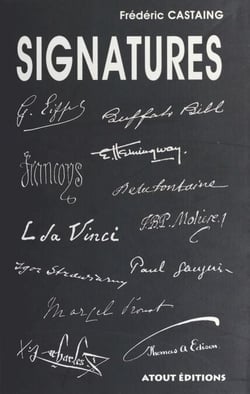 Frédéric CASTAING
SIGNATURES
G. Eiffel
Buffalo Bill
Françoys
E. Hemingway.
De la fontaine
J.B.P. Moliere
L da Vinci
Igor Strawinsky
Paul Gauguin
Marcel Proust
Charles
Thomas A Edison.
ATOUT ÉDITIONS